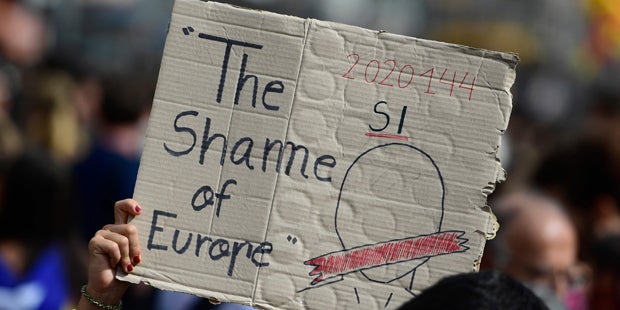 "The
Shame
of
Europe"
2020144
SI